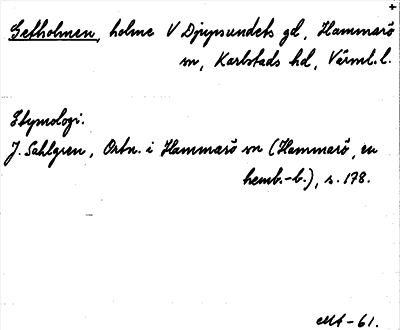 +
Getholmen, holme V Djupsundets gd, Hammarö
sn, Karlstads hd, Värml.l.
Etymologi.
J. Sahlgren, Ortn. i Hammarö sn (Hammarö, en
hemb.-b.), s. 178.
-61.